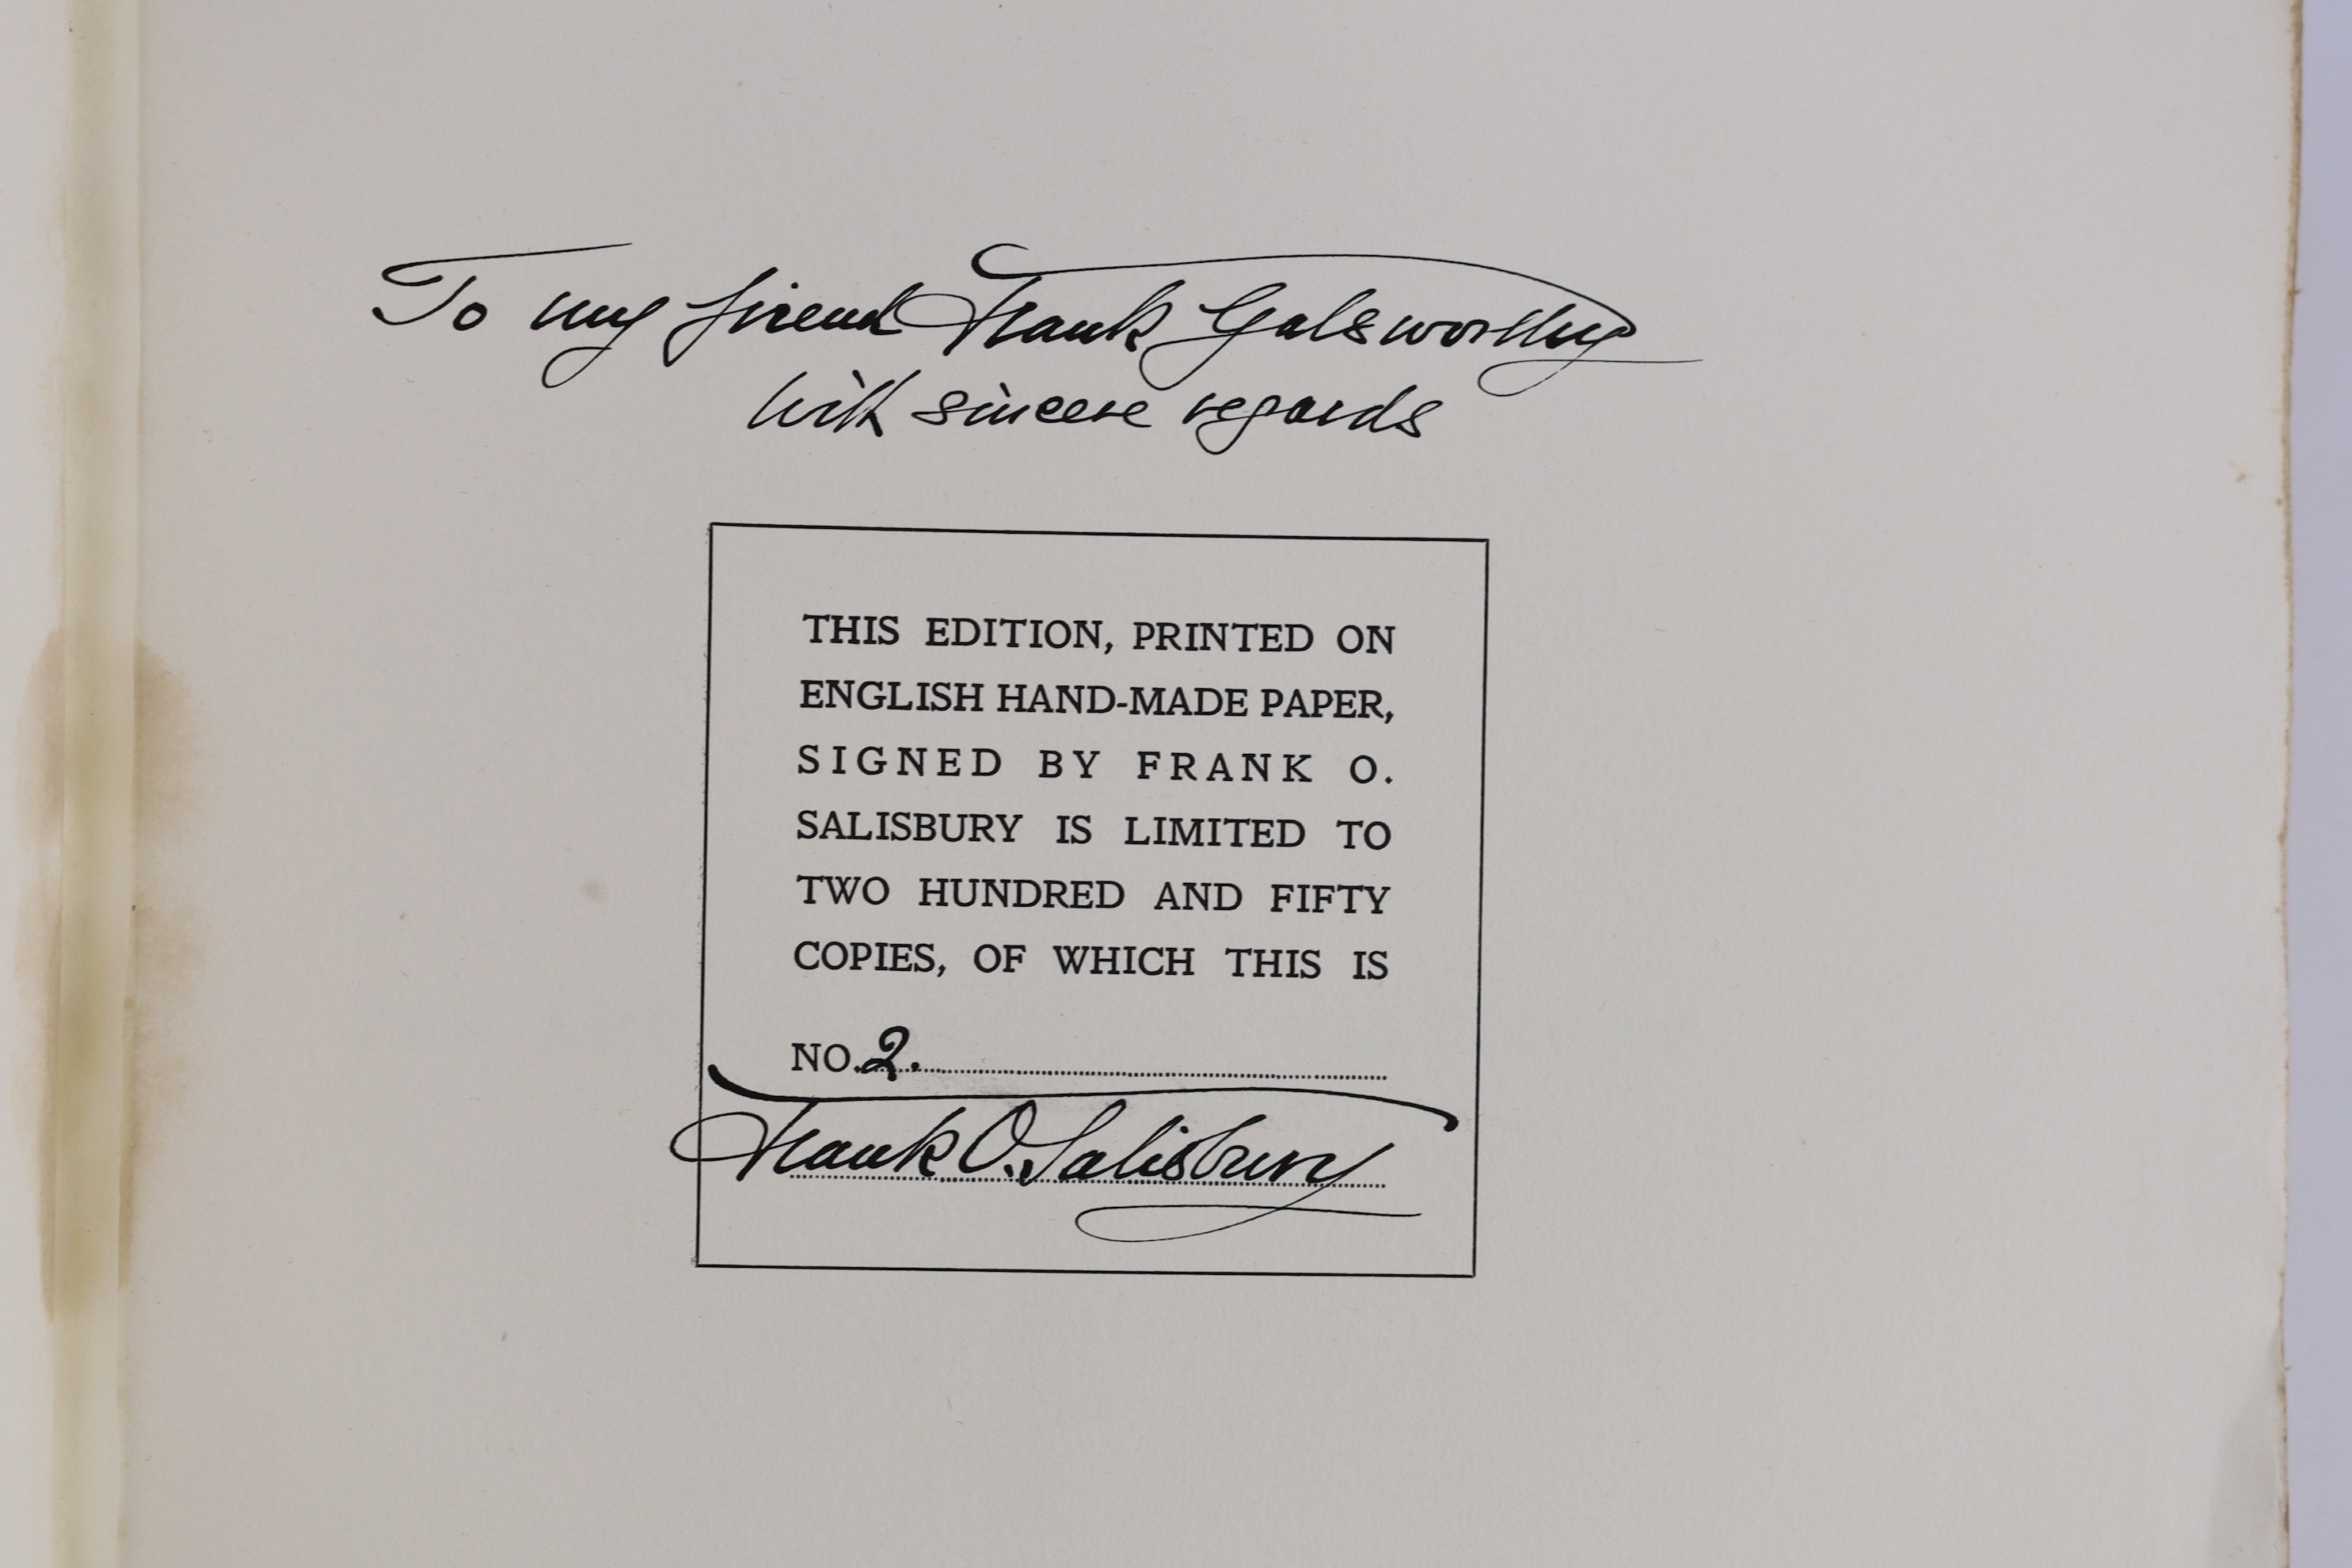 To my friend Frank Galsworthy
with sincere regards
THIS EDITION, PRINTED ON
ENGLISH HAND-MADE PAPER,
SIGNED BY FRANK O.
SALISBURY IS LIMITED TO
TWO HUNDRED AND FIFTY
COPIES, OF WHICH THIS IS
NO. 2.
Frank O. Salisbury